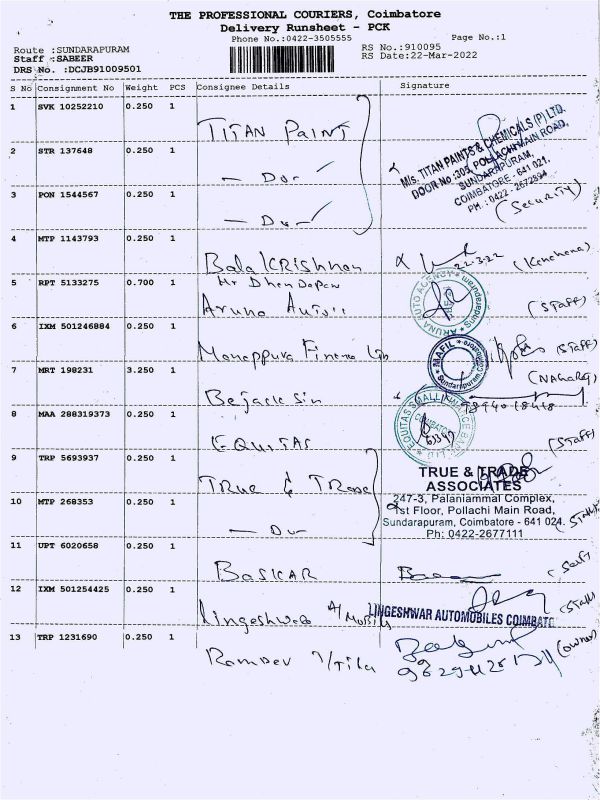 THE PROFESSIONAL COURIERS, Coimbatore
Delivery Runsheet - PCK
Phone No.:0422-3505555 Page No.:1
Route :SUNDARAPURAM RS No.:910095
Staff :SABEER RS Date:22-Mar-2022
DRS No. :DCJB91009501
S No Consignment No Weight PCS Consignee Details Signature
1 SVK 10252210 0.250 1
TITAN PAINT
M/s. TITAN PAINTS & CHEMICALS (P) LTD.
DOOR No :303, POLLACHI MAIN ROAD,
SUNDARAPURAM,
COIMBATORE - 641 021.
PH. : 0422 - 2672894
(Security)
2 STR 137648 0.250 1
- Do -
3 PON 1544567 0.250 1
- Do -
4 MTP 1143793 0.250 1
Bala Krishnan
22-3-22
5 RPT 5133275 0.700 1
Aruna
ARUNA AUTO AGENCY Sundarapuram
(Staff)
6 IXM 501246884 0.250 1
MAFIL Sundarapuram
(Staff)
7 MRT 198231 3.250 1
8 MAA 288319373 0.250 1
EQUITAS
EQUITAS SMALL FINANCE BANK LTD
COIMBATORE
(Staff)
9 TRP 5693937 0.250 1
True & Trade
TRUE & TRADE
ASSOCIATES
247-3, Palaniammal Complex,
1st Floor, Pollachi Main Road,
Sundarapuram, Coimbatore - 641 024.
Ph: 0422-2677111
10 MTP 268353 0.250 1
- Do -
11 UPT 6020658 0.250 1
BASKAR
12 IXM 501254425 0.250 1
Lingeshwar
LINGESHWAR AUTOMOBILES COIMBATORE
(Staff)
13 TRP 1231690 0.250 1
Ramdev
(owner)